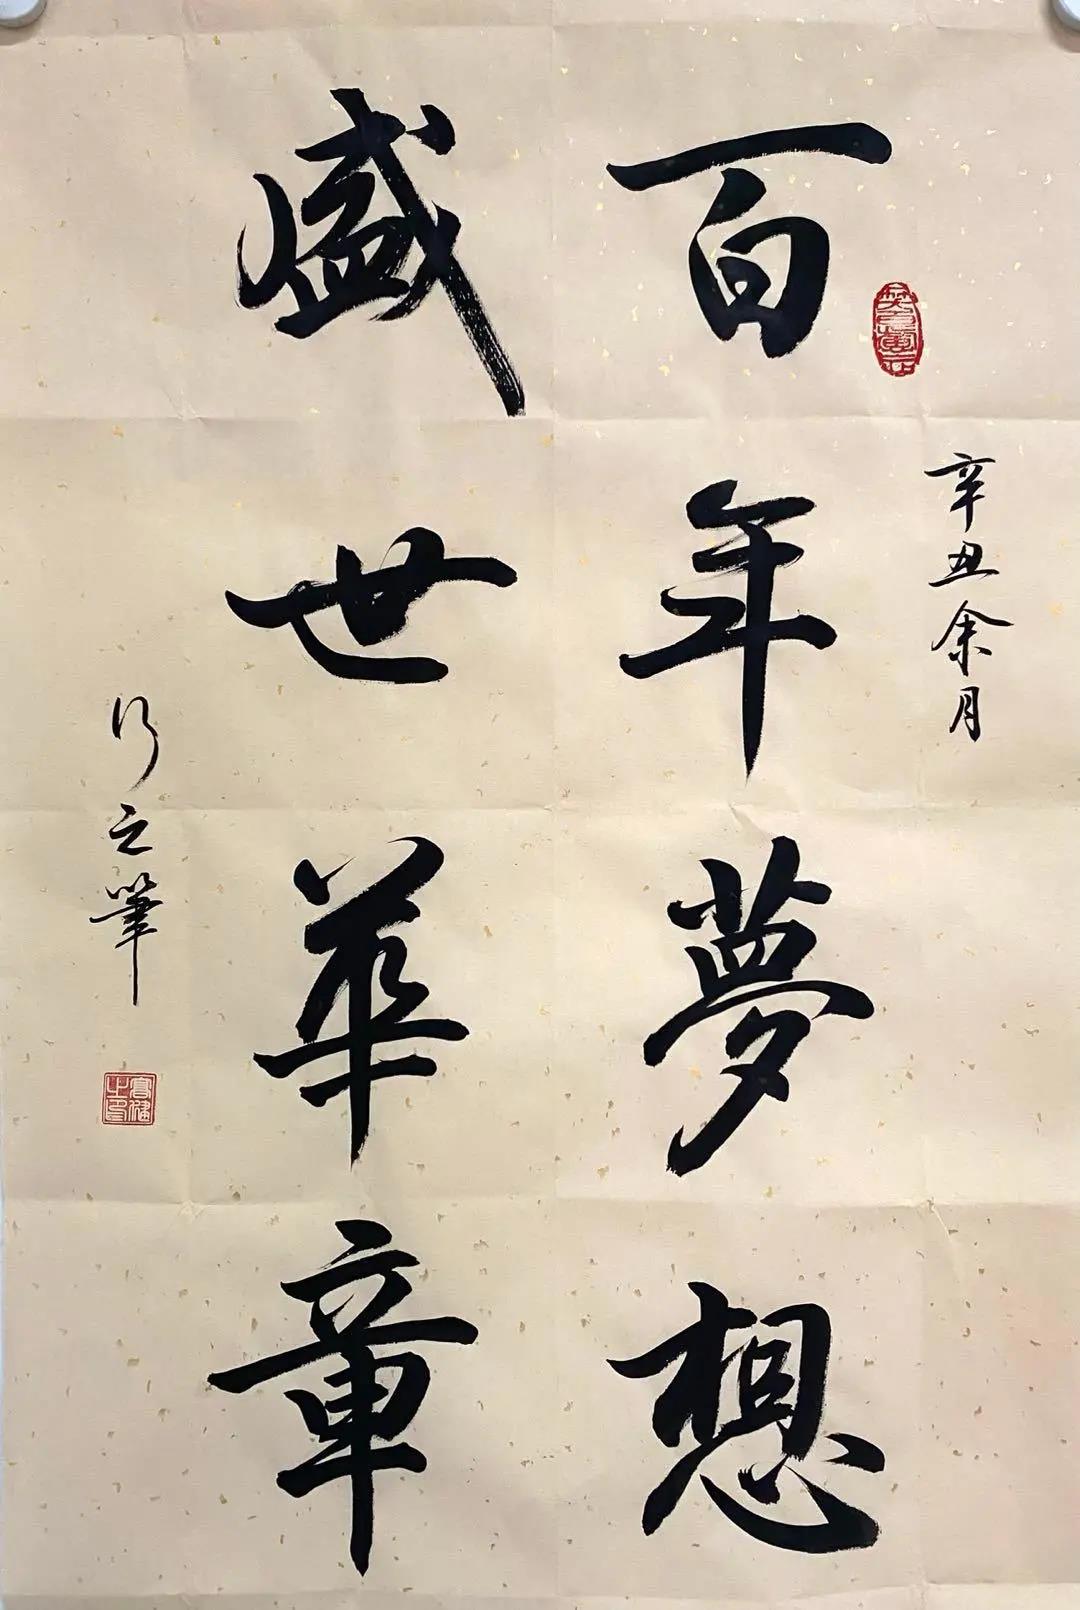 辛丑余月
百年夢想
盛世華章
行之筆